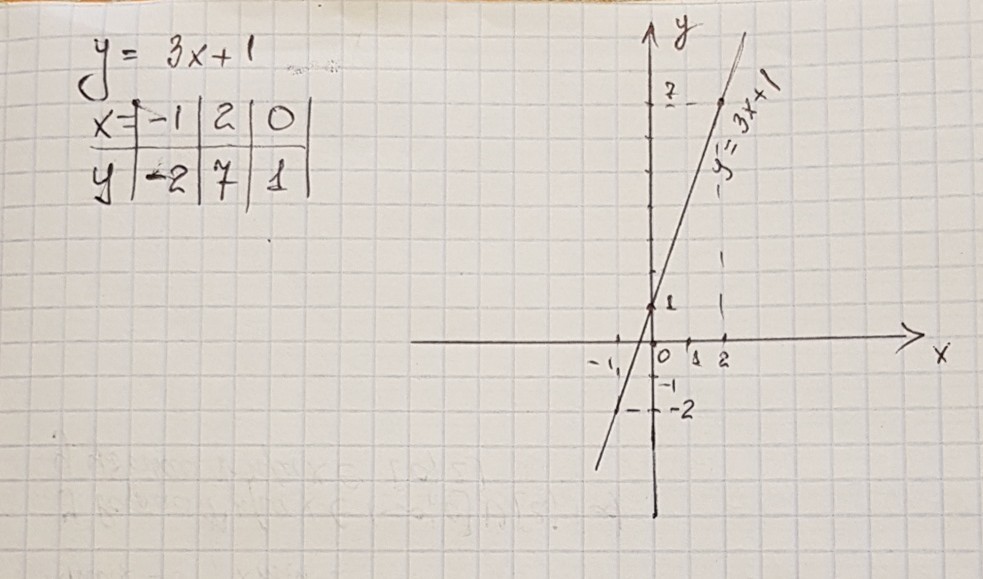 y = 3x+1
x= -1 2 0
y -2 7 1
y
7
y = 3x+1
1
-1 0 1 2
x
-1
-2